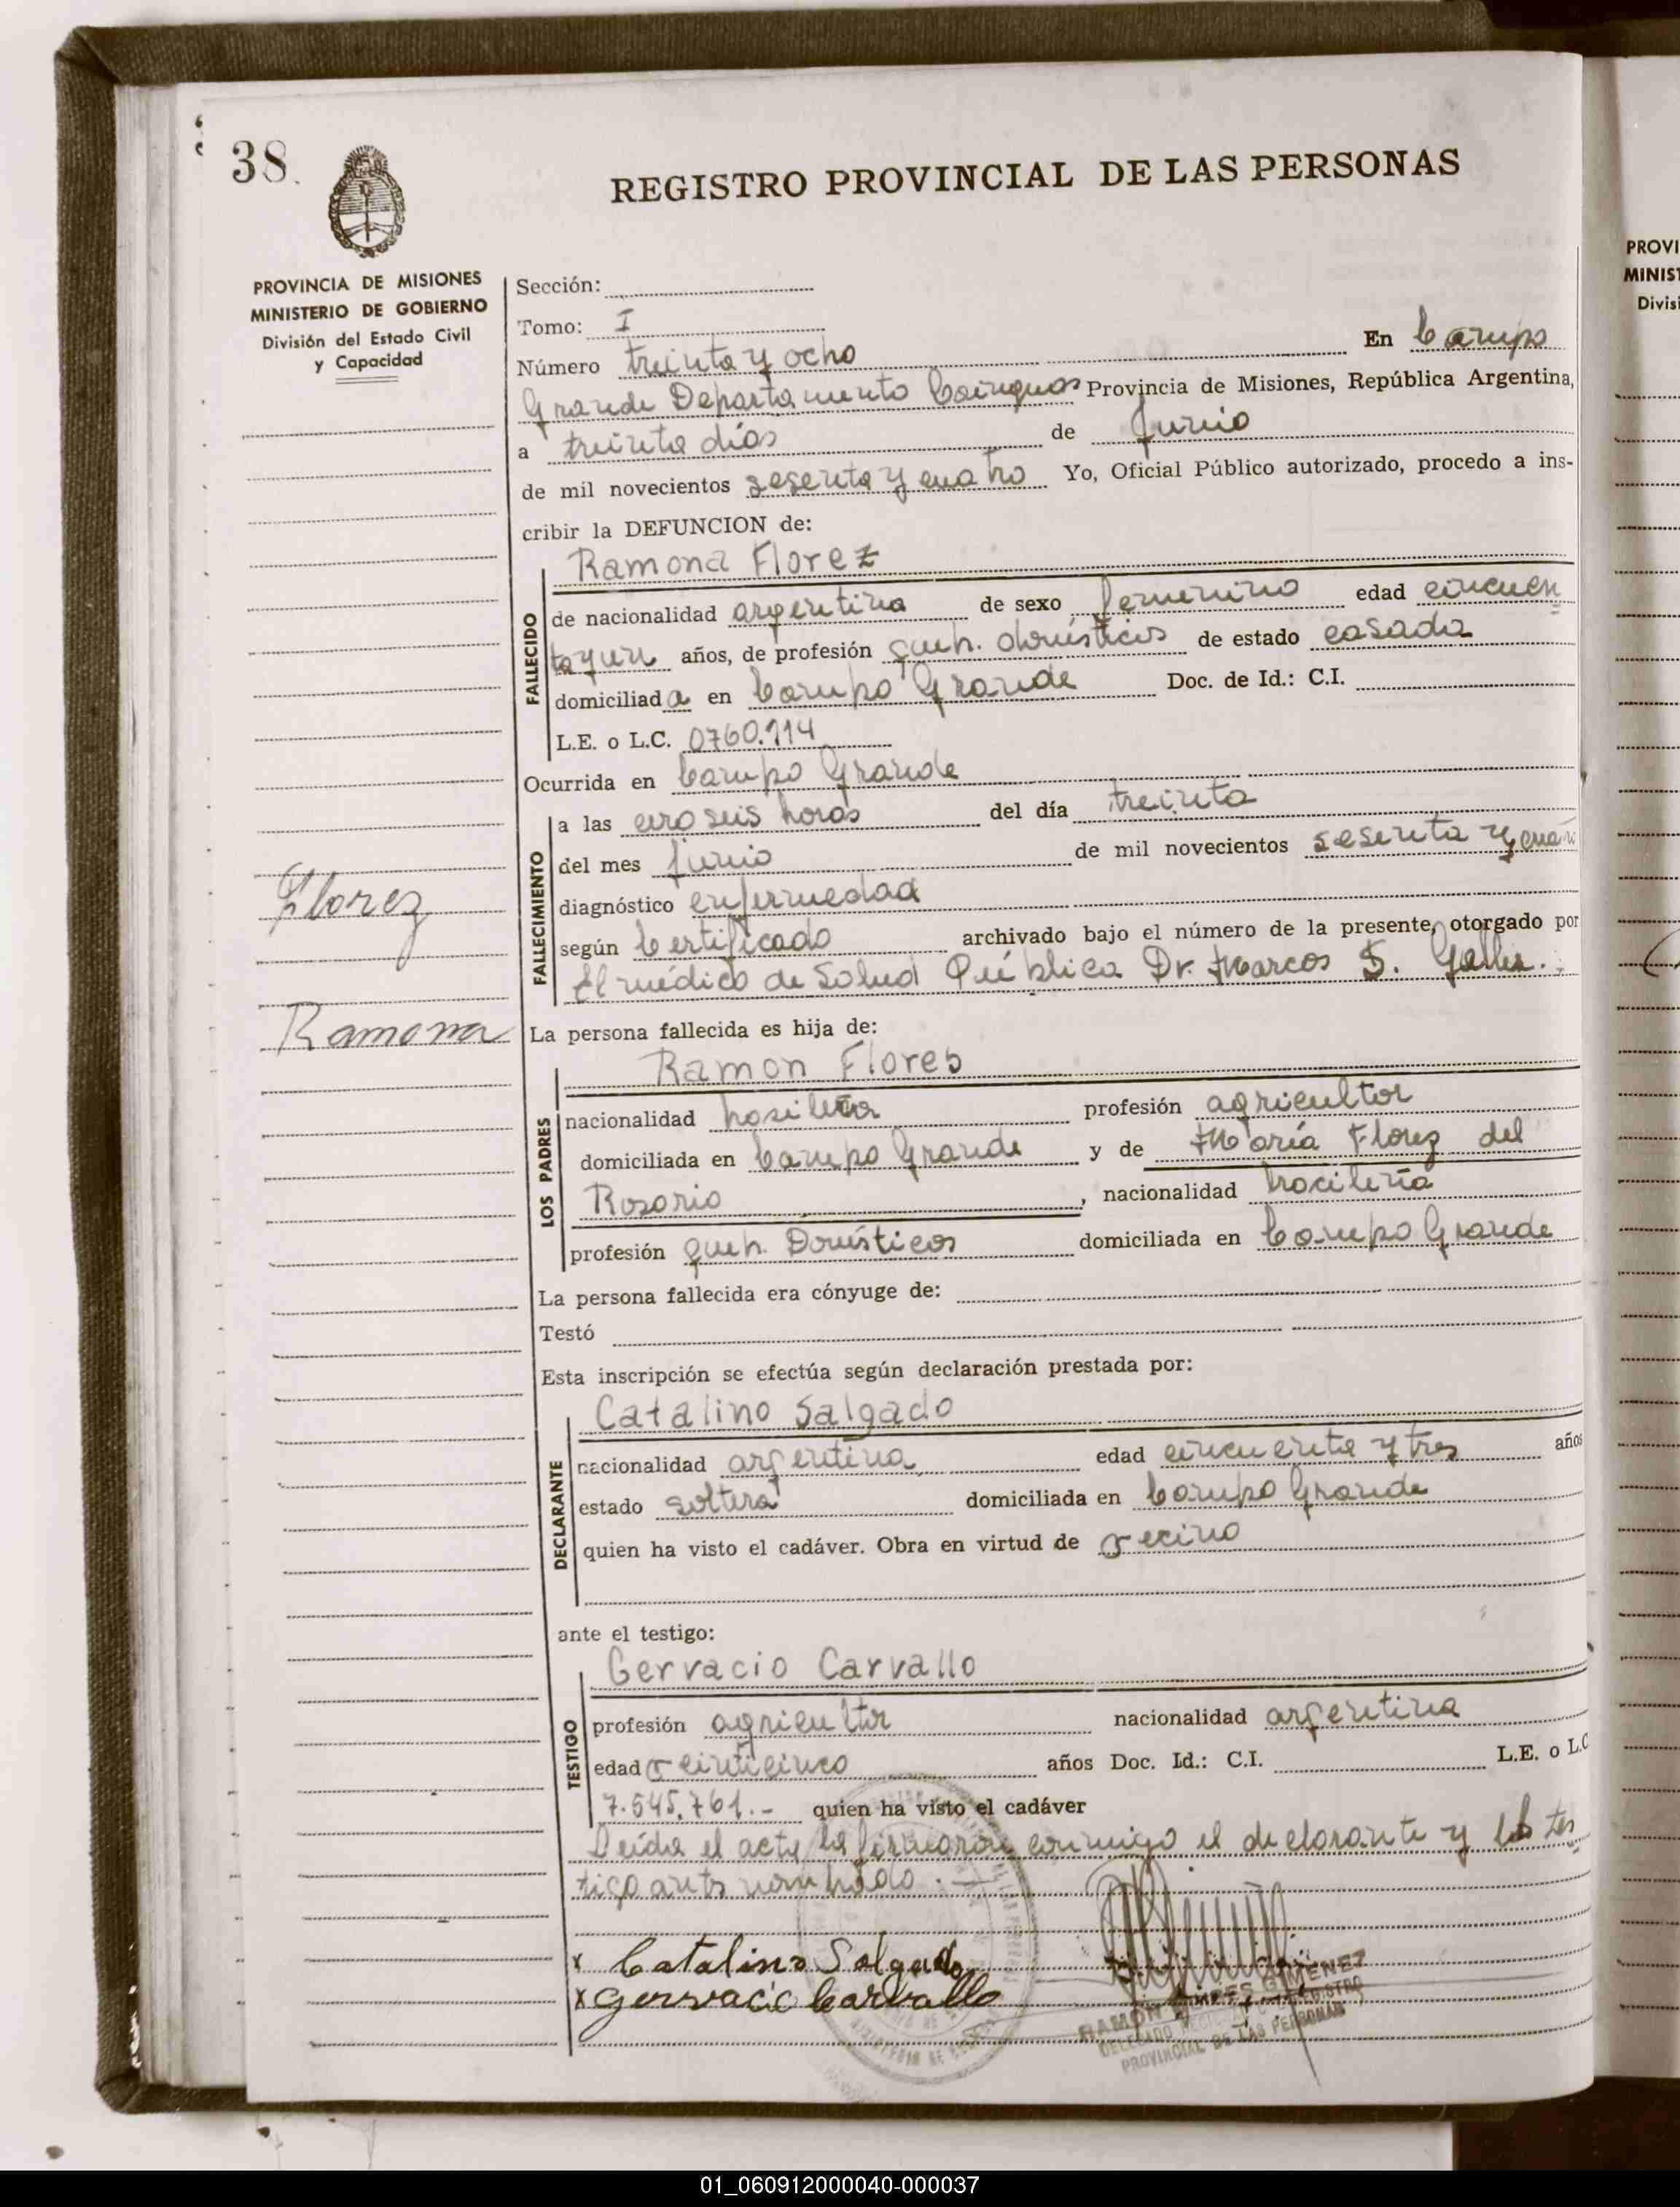 38.
REGISTRO PROVINCIAL DE LAS PERSONAS
PROVINCIA DE MISIONES
MINISTERIO DE GOBIERNO
División del Estado Civil
y Capacidad
Sección:
Tomo: I
Número treinta y ocho En Campo
Grande Departamento Cainguas Provincia de Misiones, República Argentina,
a treinta dias de Junio
de mil novecientos sesenta y cuatro Yo, Oficial Público autorizado, procedo a ins-
cribir la DEFUNCION de:
FALLECIDO
Ramona Florez
de nacionalidad argentina de sexo femenino edad cincuen
ta y un años, de profesión queh. domésticos de estado casada
domiciliad a en Campo Grande Doc. de Id.: C.I.
L.E. o L.C. 0760.114
Ocurrida en Campo Grande
FALLECIMIENTO
a las cero seis horas del día treinta
del mes junio de mil novecientos sesenta y cua
diagnóstico enfermedad
según Certificado archivado bajo el número de la presente, otorgado por
El médico de Salud Pública Dr. Marcos S.
Florez
Ramona
La persona fallecida es hija de:
LOS PADRES
Ramon Flores
nacionalidad profesión agricultor
domiciliada en Campo Grande y de María Florez del
Rosario, nacionalidad
profesión queh. Domésticos domiciliada en Campo Grande
La persona fallecida era cónyuge de:
Testó
Esta inscripción se efectúa según declaración prestada por:
DECLARANTE
Catalino Salgado
nacionalidad argentina edad cincuenta y tres años
estado soltera domiciliada en Campo Grande
quien ha visto el cadáver. Obra en virtud de vecino
ante el testigo:
TESTIGO
Gervacio Carvallo
profesión agricultor nacionalidad argentina
edad veinticinco años Doc. Id.: C.I. L.E. o L.C
7.545.761.- quien ha visto el cadáver
Leída el acta la firmaron conmigo el declarante y tes
tigo antes nombrado.
x Catalino Salgado
x Gervacio Carvallo
GIMENEZ
RAMON
DELEGADO REGISTRO
PROVINCIAL DE LAS PERSONAS
PROVI
MINIST
Divisi
01_060912000040-000037